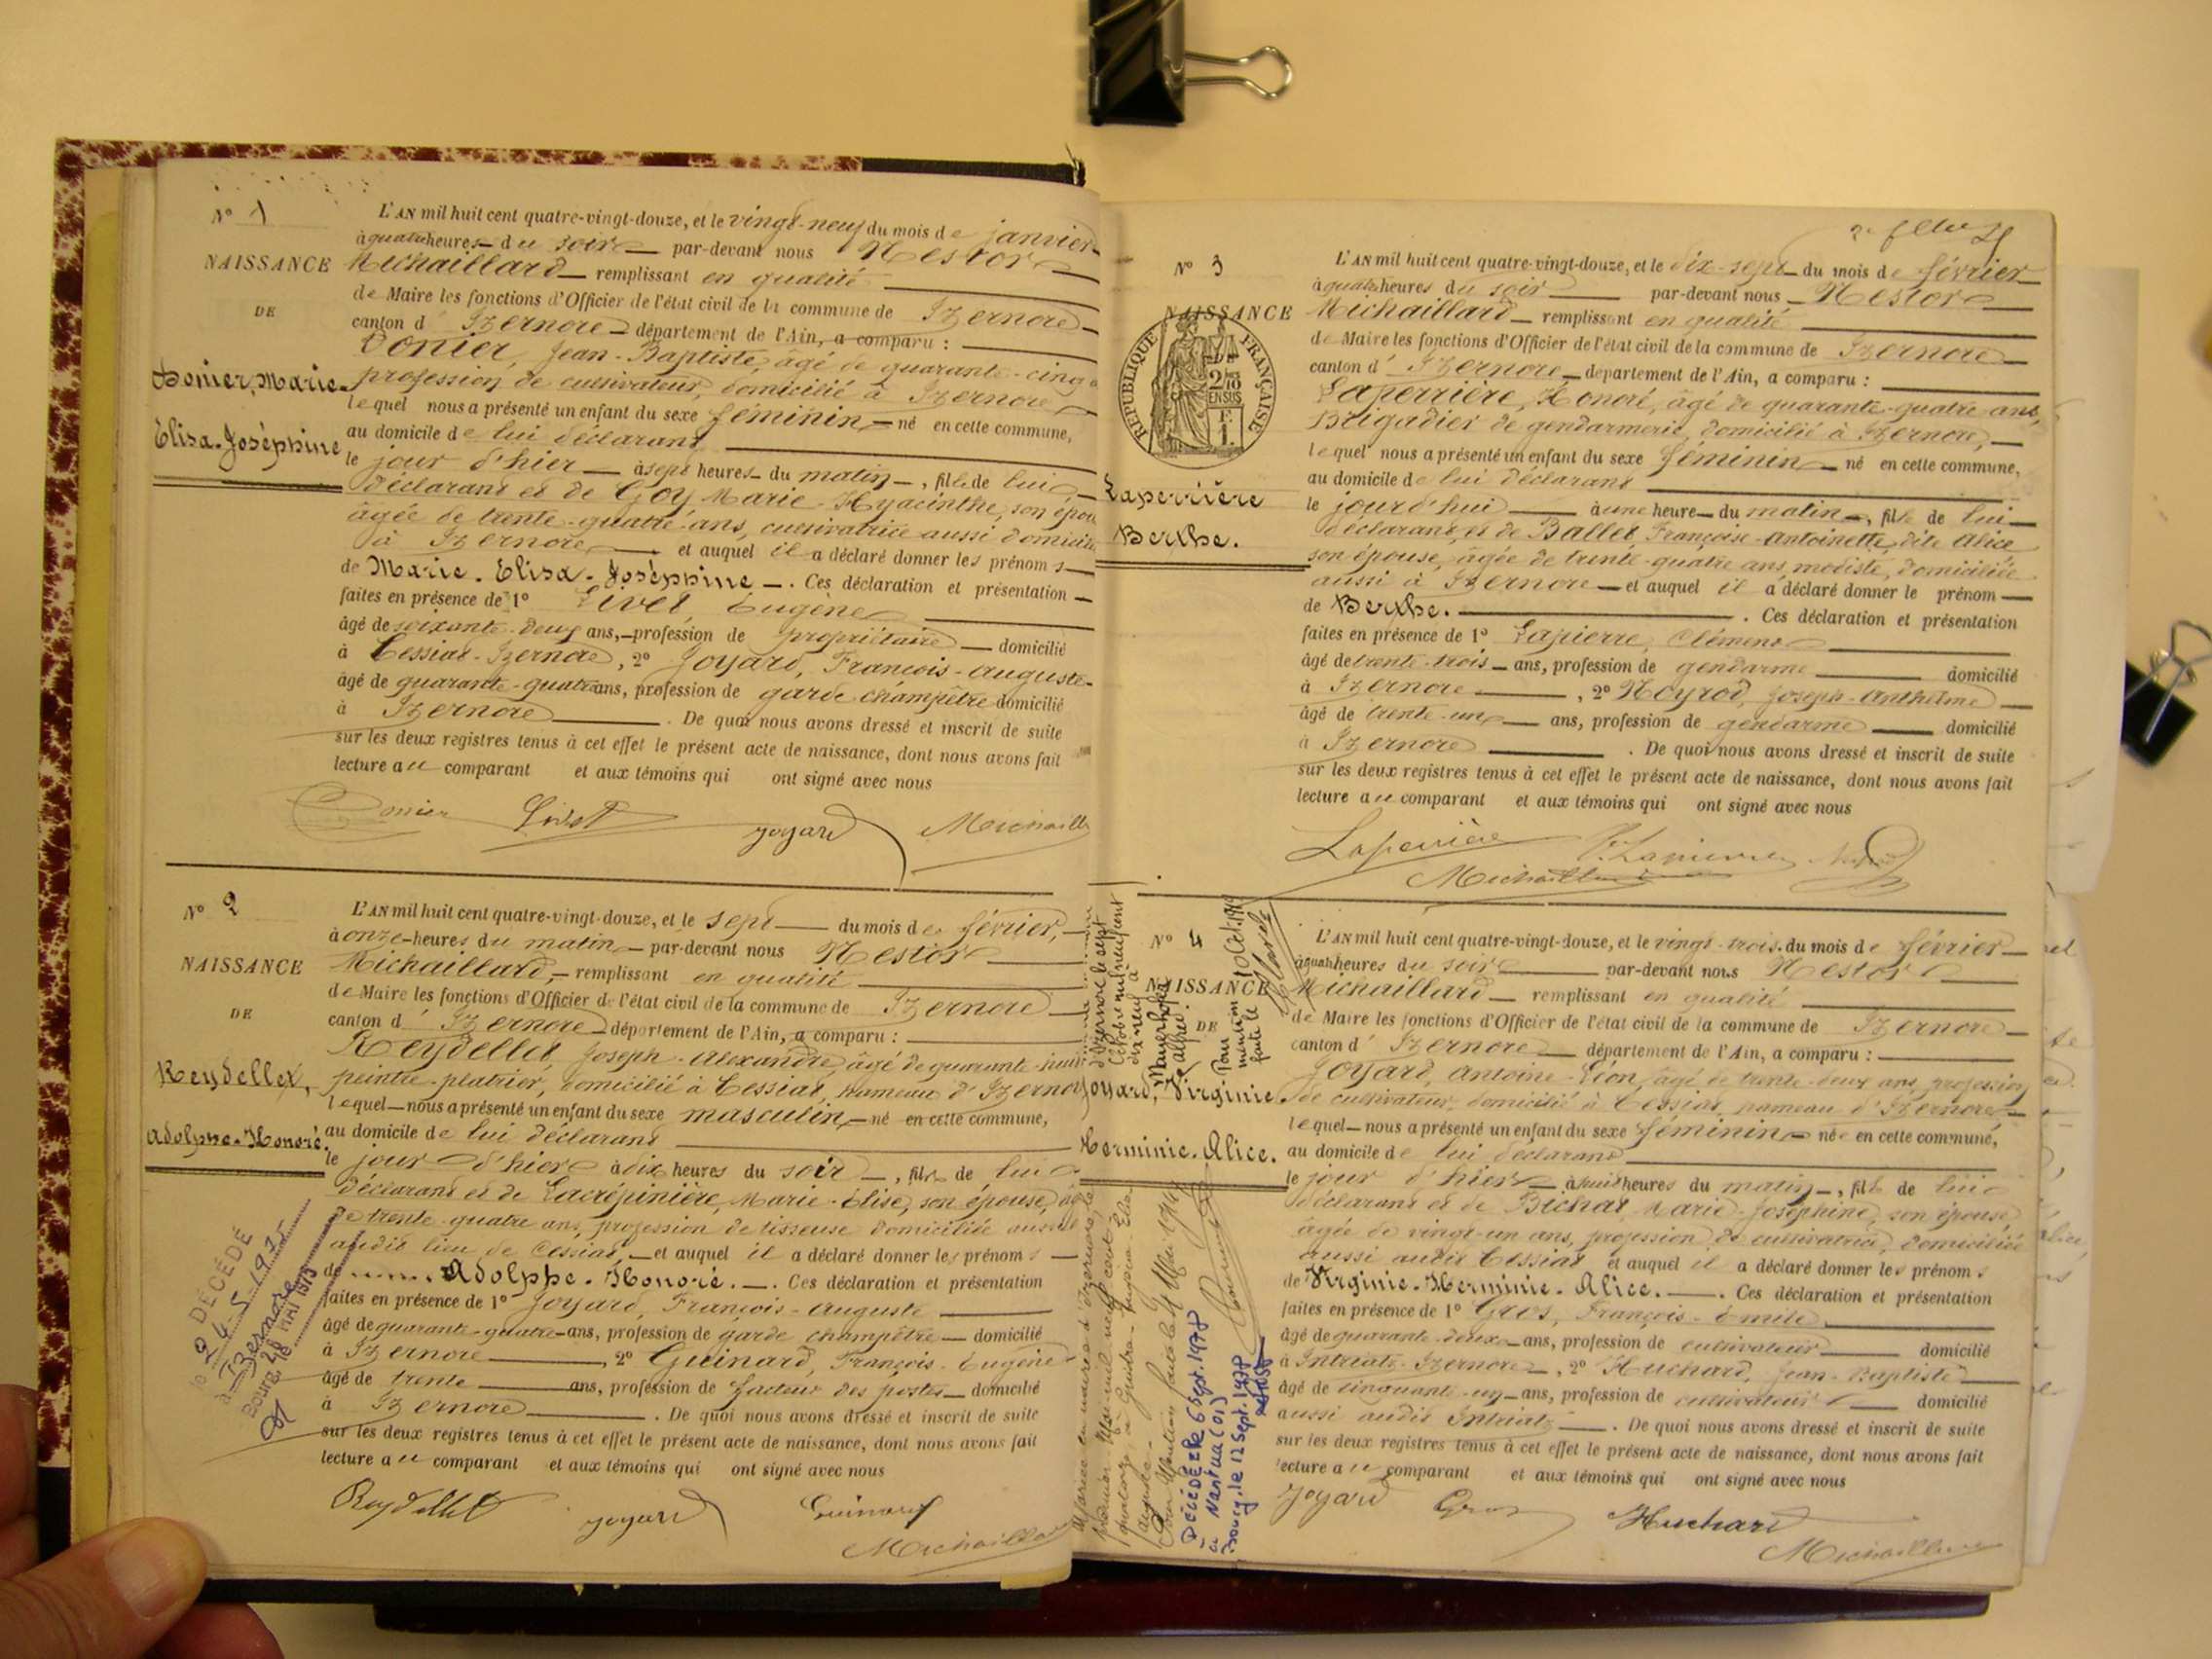 N° 1
NAISSANCE
DE
Donier, Marie-
Elisa-Joséphine
L'AN mil huit cent quatre-vingt-douze, et le vingt-neuf du mois de janvier
à quatre heures du soir par-devant nous Nestor
Michaillard remplissant en qualité
de Maire les fonctions d'Officier de l'état civil de la commune de Izernore
canton d'Izernore département de l'Ain, a comparu :
Donier, Jean-Baptiste, âgé de quarante-cinq
profession de cultivateur, domicilié à Izernore
lequel nous a présenté un enfant du sexe féminin né en cette commune,
au domicile de lui déclarant
le jour d'hier à sept heures du matin, fille de lui
déclarant et de Goy Marie-Hyacinthe, son épou
âgée de trente-quatre ans, cultivatrice aussi domicili
à Izernore et auquel il a déclaré donner les prénoms
de Marie-Elisa-Joséphine. Ces déclaration et présentation
faites en présence de 1° Livet, Eugène
âgé de soixante-deux ans, profession de propriétaire domicilié
à Cessiat-Izernore, 2° Joyard, François-Auguste
âgé de quarante-quatre ans, profession de garde champêtre domicilié
à Izernore. De quoi nous avons dressé et inscrit de suite
sur les deux registres tenus à cet effet le présent acte de naissance, dont nous avons fait
lecture au comparant et aux témoins qui ont signé avec nous
Donier Livet Joyard Michaill
N° 2
NAISSANCE
DE
Reydellet,
Adolphe-Honoré
L'AN mil huit cent quatre-vingt-douze, et le sept du mois de février,
à onze heures du matin par-devant nous Nestor
Michaillard, remplissant en qualité
de Maire les fonctions d'Officier de l'état civil de la commune de Izernore
canton d'Izernore département de l'Ain, a comparu :
Reydellet, Joseph-Alexandre, âgé de quarante-huit
peintre-platrier, domicilié à Cessiat, hameau d'Izernore
lequel nous a présenté un enfant du sexe masculin, né en cette commune,
au domicile de lui déclarant
le jour d'hier à dix heures du soir, fils de lui
déclarant et de Lacrépinière, Marie-Élise, son épouse, âg
de trente-quatre ans, profession de tisseuse domiciliée aussi
audit lieu de Cessiat, et auquel il a déclaré donner les prénoms
de Adolphe-Honoré. Ces déclaration et présentation
faites en présence de 1° Joyard, François-Auguste
âgé de quarante-quatre ans, profession de garde champêtre domicilié
à Izernore, 2° Guinard, François-Eugène
âgé de trente ans, profession de facteur des postes domicilié
à Izernore. De quoi nous avons dressé et inscrit de suite
sur les deux registres tenus à cet effet le présent acte de naissance, dont nous avons fait
lecture au comparant et aux témoins qui ont signé avec nous
Reydellet Joyard Guinard
Michaillard
DÉCÉDÉ
le 24-5-1975
à Izernore
Bourg, le 28 MAI 1975
N° 3
NAISSANCE
RÉPUBLIQUE FRANÇAISE
2/10
EN SUS
Laperrière
Berthe.
L'AN mil huit cent quatre-vingt-douze, et le dix-sept du mois de février
à quatre heures du soir par-devant nous Nestor
Michaillard remplissant en qualité
de Maire les fonctions d'Officier de l'état civil de la commune de Izernore
canton d'Izernore département de l'Ain, a comparu :
Laperrière, Honoré, âgé de quarante-quatre ans,
Brigadier de gendarmerie, domicilié à Izernore,
lequel nous a présenté un enfant du sexe féminin né en cette commune,
au domicile de lui déclarant
le jourd'hui à une heure du matin, fille de lui
déclarant et de Ballet Françoise-Antoinette, dite Alice
son épouse, âgée de trente-quatre ans, modiste, domiciliée
aussi à Izernore et auquel il a déclaré donner le prénom
de Berthe. Ces déclaration et présentation
faites en présence de 1° Lapierre, Clément
âgé de trente-trois ans, profession de gendarme domicilié
à Izernore, 2° Neyrod, Joseph-Anthelme
âgé de trente-un ans, profession de gendarme domicilié
à Izernore. De quoi nous avons dressé et inscrit de suite
sur les deux registres tenus à cet effet le présent acte de naissance, dont nous avons fait
lecture au comparant et aux témoins qui ont signé avec nous
Laperrière Lapierre
Michaillard
N° 4
NAISSANCE
DE
Joyard, Virginie
Herminie-Alice.
L'AN mil huit cent quatre-vingt-douze, et le vingt-trois du mois de février
à quatre heures du soir par-devant nous Nestor
Michaillard remplissant en qualité
de Maire les fonctions d'Officier de l'état civil de la commune de Izernore
canton d'Izernore département de l'Ain, a comparu :
Joyard, Antoine-Léon, âgé de trente-deux ans, profession
de cultivateur, domicilié à Cessiat, hameau d'Izernore
lequel nous a présenté un enfant du sexe féminin née en cette commune,
au domicile de lui déclarant
le jour d'hier à huit heures du matin, fille de lui
déclarant et de Bichat, Marie-Joséphine, son épouse
âgée de vingt-un ans, profession de cultivatrice, domiciliée
aussi audit Cessiat et auquel il a déclaré donner les prénoms
de Virginie-Herminie-Alice. Ces déclaration et présentation
faites en présence de 1° Gros, François-Emile
âgé de quarante-deux ans, profession de cultivateur domicilié
à Intriat-Izernore, 2° Huchard, Jean-Baptiste
âgé de cinquante-un ans, profession de cultivateur domicilié
aussi audit Intriat. De quoi nous avons dressé et inscrit de suite
sur les deux registres tenus à cet effet le présent acte de naissance, dont nous avons fait
lecture au comparant et aux témoins qui ont signé avec nous
Joyard Gros Huchard
Michaillard
d'Izernore le sept
Octobre mil neuf cent
dix neuf à
Alfred.
Pour
mention
faite le 10 Oct. 1919
Mariée en mairie d'Izernore, le
premier Mai mil neuf cent
quatorze à
Auguste
Pour Mention faite le 4 Mai 1914
DÉCÉDÉE le 6 Sept. 1978
à Nantua (01)
Bourg, le 12 Sept. 1978